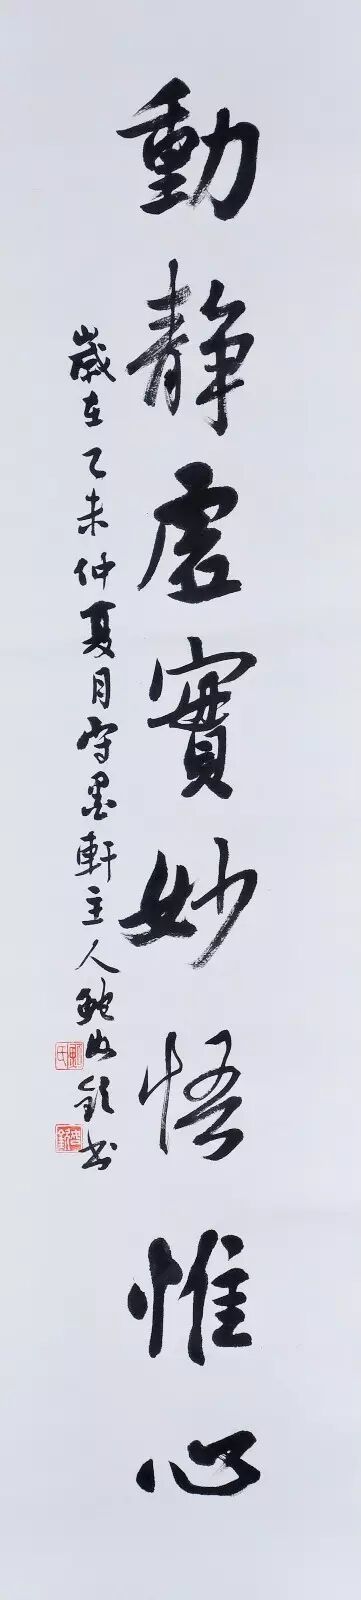 動静虛實妙悟惟心
歲在乙未仲夏月守墨軒主人鮑書